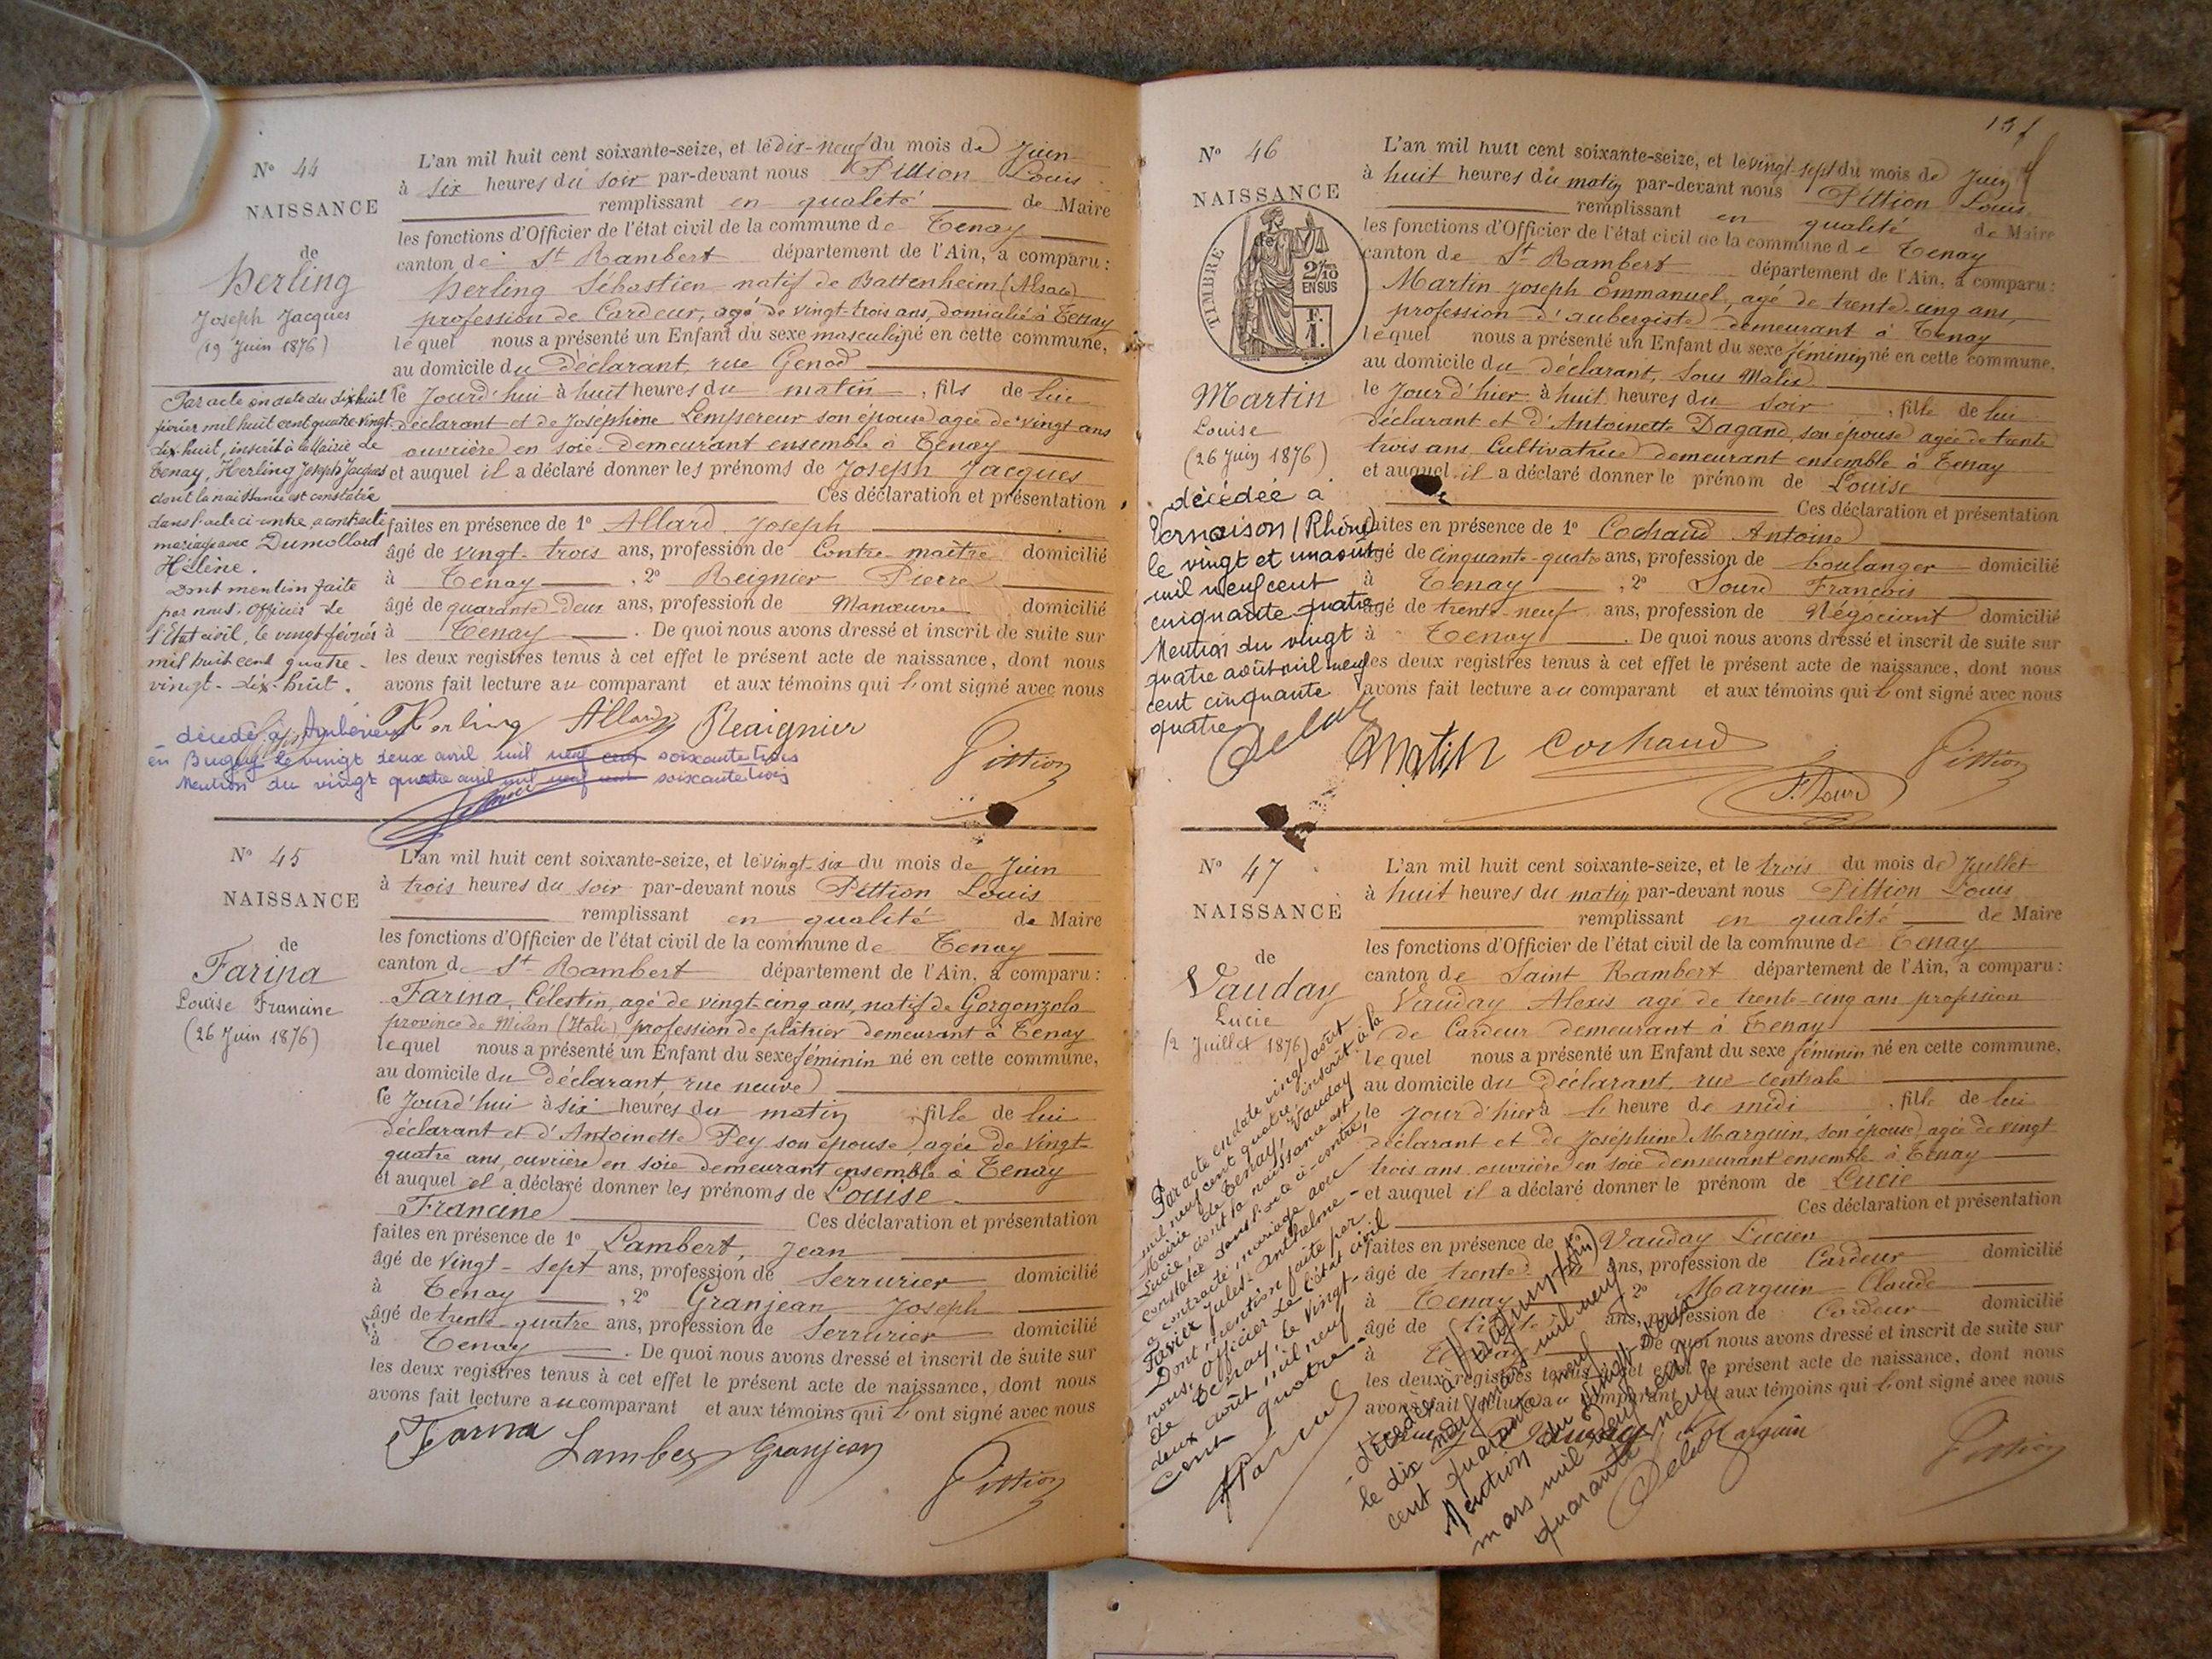 N° 44
NAISSANCE
de
Herling
Joseph Jacques
(19 Juin 1876)
Par acte en date du dix huit
février mil huit cent quatre-vingt-
dix-huit, inscrit à la Mairie de
Tenay, Herling Joseph Jacques
dont la naissance est constatée
dans l'acte ci-contre, a contracté
mariage avec Dumollard
Hélène.
Dont mention faite
par nous, Officier de
l'Etat civil, le vingt février
mil huit cent quatre-
vingt-dix-huit.
L'an mil huit cent soixante-seize, et le dix-neuf du mois de Juin
à six heures du soir par-devant nous Pittion Louis
remplissant en qualité de Maire
les fonctions d'Officier de l'état civil de la commune de Tenay
canton de St Rambert département de l'Ain, a comparu :
Herling Sébastien natif de Battenheim (Alsace)
profession de Cardeur, agé de vingt-trois ans, domicilié à Tenay
lequel nous a présenté un Enfant du sexe masculin né en cette commune,
au domicile du Déclarant, rue Genod
le Jourd'hui à huit heures du matin, fils de lui
déclarant et de Joséphine Lempereur son épouse agée de vingt ans
ouvrière en soie demeurant ensemble à Tenay
et auquel il a déclaré donner les prénoms de Joseph Jacques
Ces déclaration et présentation
faites en présence de 1° Allard Joseph
âgé de vingt-trois ans, profession de Contre-maître domicilié
à Tenay, 2° Reignier Pierre
âgé de quarante-deux ans, profession de Manœuvre domicilié
à Tenay. De quoi nous avons dressé et inscrit de suite sur
les deux registres tenus à cet effet le présent acte de naissance, dont nous
avons fait lecture au comparant et aux témoins qui l'ont signé avec nous
Herling Allard Reaignier
Pittion
décédé à Ambérieu
en Bugey le vingt deux avril mil neuf cent soixante trois
Mention du vingt quatre avril mil neuf cent soixante trois
N° 45
NAISSANCE
de
Farina
Louise Francine
(26 Juin 1876)
L'an mil huit cent soixante-seize, et le vingt-six du mois de Juin
à trois heures du soir par-devant nous Pittion Louis
remplissant en qualité de Maire
les fonctions d'Officier de l'état civil de la commune de Tenay
canton de St Rambert département de l'Ain, a comparu :
Farina, Célestin, agé de vingt-cinq ans, natif de Gorgonzola
province de Milan (Italie) profession de plâtrier demeurant à Tenay
lequel nous a présenté un Enfant du sexe féminin né en cette commune,
au domicile du Déclarant, rue neuve
le Jourd'hui à six heures du matin, fille de lui
déclarant et d'Antoinette Pey son épouse, agée de vingt-
quatre ans, ouvrière en soie demeurant ensemble à Tenay
et auquel il a déclaré donner les prénoms de Louise
Francine Ces déclaration et présentation
faites en présence de 1° Lambert, Jean
âgé de vingt-sept ans, profession de Serrurier domicilié
à Tenay, 2° Granjean Joseph
âgé de trente-quatre ans, profession de Serrurier domicilié
à Tenay. De quoi nous avons dressé et inscrit de suite sur
les deux registres tenus à cet effet le présent acte de naissance, dont nous
avons fait lecture au comparant et aux témoins qui l'ont signé avec nous
Farina Lambert Granjean
Pittion
N° 46
NAISSANCE
de
TIMBRE
2/10
EN SUS
F.
1.
Martin
Louise
(26 Juin 1876)
décédée à
Vernaison (Rhône)
le vingt et un août
mil neuf cent
cinquante quatre
Mention du vingt
quatre août mil neuf
cent cinquante
quatre
L'an mil huit cent soixante-seize, et le vingt-sept du mois de Juin
à huit heures du matin par-devant nous Pittion Louis
remplissant en qualité de Maire
les fonctions d'Officier de l'état civil de la commune de Tenay
canton de St Rambert département de l'Ain, a comparu :
Martin Joseph Emmanuel, agé de trente-cinq ans,
profession d'aubergiste demeurant à Tenay
lequel nous a présenté un Enfant du sexe féminin né en cette commune,
au domicile du déclarant, Sous Malix
le Jour d'hier à huit heures du soir, fille de lui
déclarant et d'Antoinette Dagand, son épouse agée de trente
trois ans, Cultivatrice demeurant ensemble à Tenay
et auquel il a déclaré donner le prénom de Louise
Ces déclaration et présentation
faites en présence de 1° Cochaud Antoine
âgé de Cinquante-quatre ans, profession de boulanger domicilié
à Tenay, 2° Sourd François
âgé de trente-neuf ans, profession de Négociant domicilié
à Tenay. De quoi nous avons dressé et inscrit de suite sur
les deux registres tenus à cet effet le présent acte de naissance, dont nous
avons fait lecture au comparant et aux témoins qui l'ont signé avec nous
Martin Cochaud
F. Sourd
Pittion
N° 47
NAISSANCE
de
Vauday
Lucie
(2 Juillet 1876)
Par acte en date vingt août
mil neuf cent quatre inscrit à la
Mairie de Tenay, Vauday
Lucie dont la naissance est
constatée dans l'acte ci-contre,
a contracté mariage avec
Favier Jules-Anthelme-
Dont mention faite par
nous, Officier de l'état civil
de Tenay, le vingt-
deux août mil neuf
cent quatre.
L'an mil huit cent soixante-seize, et le trois du mois de Juillet
à huit heures du matin par-devant nous Pittion Louis
remplissant en qualité de Maire
les fonctions d'Officier de l'état civil de la commune de Tenay
canton de Saint Rambert département de l'Ain, a comparu :
Vauday Alexis agé de trente-cinq ans profession
de Cardeur demeurant à Tenay
lequel nous a présenté un Enfant du sexe féminin né en cette commune,
au domicile du Déclarant, rue centrale
le jour d'hier à l' heure de midi, fille de lui
déclarant et de Joséphine Marguin, son épouse agée de vingt
trois ans, ouvrière en soie demeurant ensemble à Tenay
et auquel il a déclaré donner le prénom de Lucie
Ces déclaration et présentation
faites en présence de 1° Vauday Lucien
âgé de trente ans, profession de Cardeur domicilié
à Tenay, 2° Marguin Claude
âgé de ans, profession de Cardeur domicilié
à Tenay. De quoi nous avons dressé et inscrit de suite sur
les deux registres tenus à cet effet le présent acte de naissance, dont nous
avons fait lecture au comparant et aux témoins qui l'ont signé avec nous
Vauday Marguin
Pittion
décédée à
le dix neuf mars mil neuf
cent quarante neuf
Mention du vingt-deux
mars mil neuf cent
quarante neuf